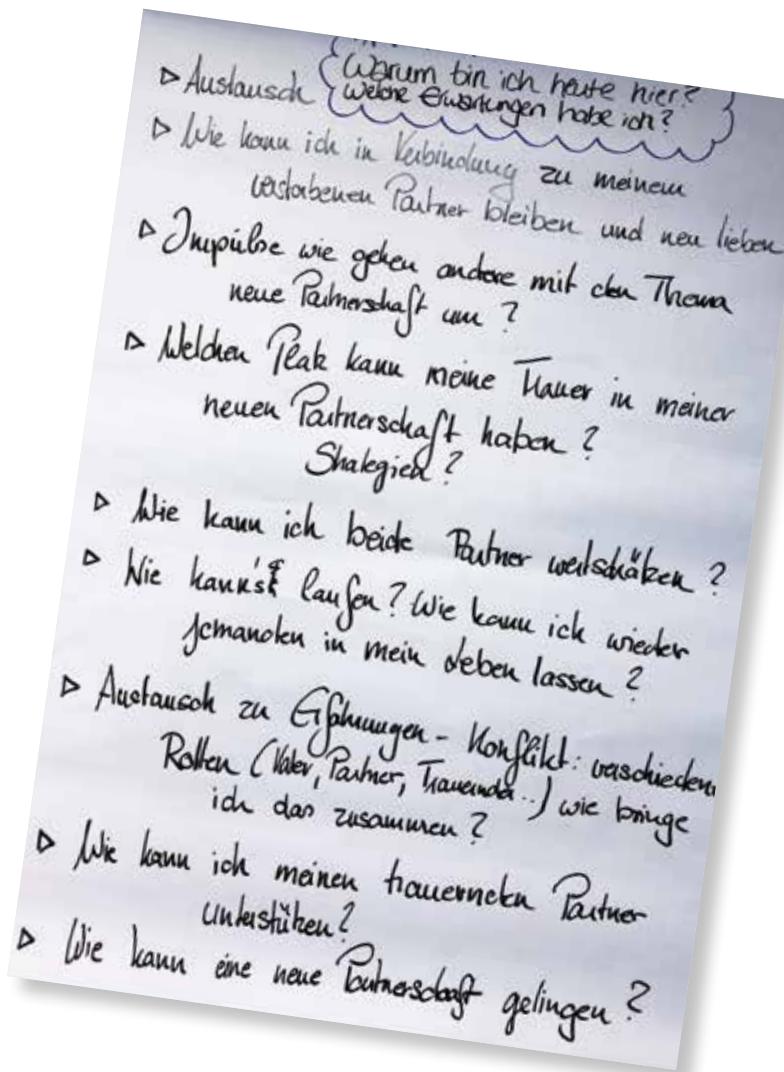 Warum bin ich heute hier?
welche Erwartungen habe ich?
▷ Austausch
▷ Wie kann ich in Verbindung zu meinem
verstorbenen Partner bleiben und neu lieben
▷ Impulse wie gehen andere mit den Thema
neue Partnerschaft um?
▷ Welchen Platz kann meine Trauer in meiner
neuen Partnerschaft haben?
Strategien?
▷ Wie kann ich beide Partner wertschätzen?
▷ Wie kann's laufen? Wie kann ich wieder
jemanden in mein Leben lassen?
▷ Austausch zu Erfahrungen - Konflikt: verschiedene
Rollen (Vater, Partner, Trauernder..) wie bringe
ich das zusammen?
▷ Wie kann ich meinen trauernden Partner
unterstützen?
▷ Wie kann eine neue Partnerschaft gelingen?